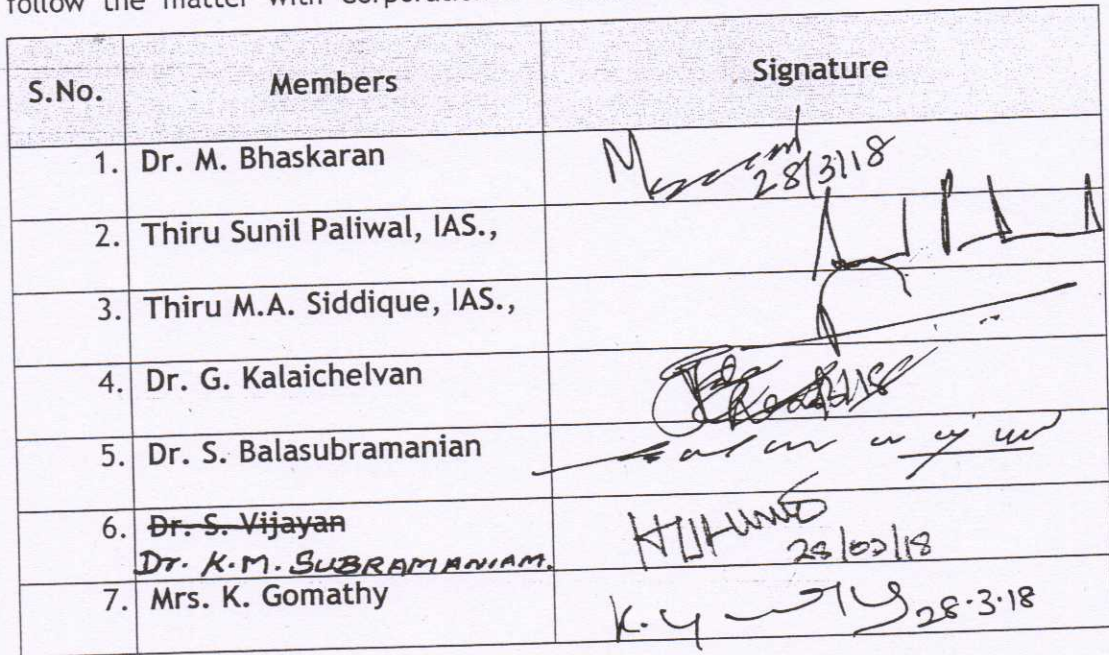 follow the matter with Corporation
S.No. Members Signature
1. Dr. M. Bhaskaran
28/3/18
2. Thiru Sunil Paliwal, IAS.,
3. Thiru M.A. Siddique, IAS.,
4. Dr. G. Kalaichelvan
5. Dr. S. Balasubramanian
6. Dr. S. Vijayan
Dr. K.M. SUBRAMANIAM.
28/03/18
7. Mrs. K. Gomathy
28.3.18